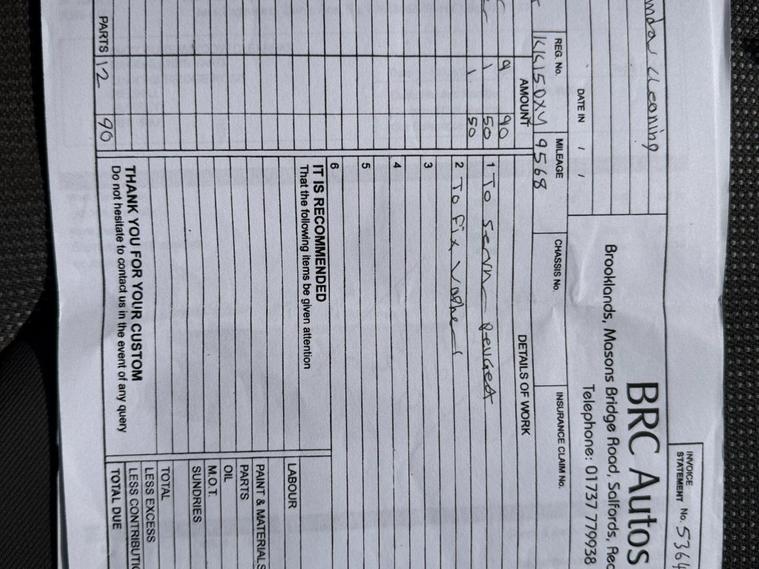 INVOICE
STATEMENT No. 5364
BRC Autos
Brooklands, Masons Bridge Road, Salfords, Red
Telephone: 01737 779938
Cleaning
DATE IN / /
REG. No. MILEAGE CHASSIS No. INSURANCE CLAIM No.
KK15OXY 9568
AMOUNT DETAILS OF WORK
9 90
1 50 1 To
1 50 2 To fix
3
4
5
6
IT IS RECOMMENDED
That the following items be given attention
LABOUR
PAINT & MATERIALS
PARTS
OIL
M.O.T.
SUNDRIES
TOTAL
LESS EXCESS
LESS CONTRIBUTIO
TOTAL DUE
PARTS 12 90
THANK YOU FOR YOUR CUSTOM
Do not hesitate to contact us in the event of any query